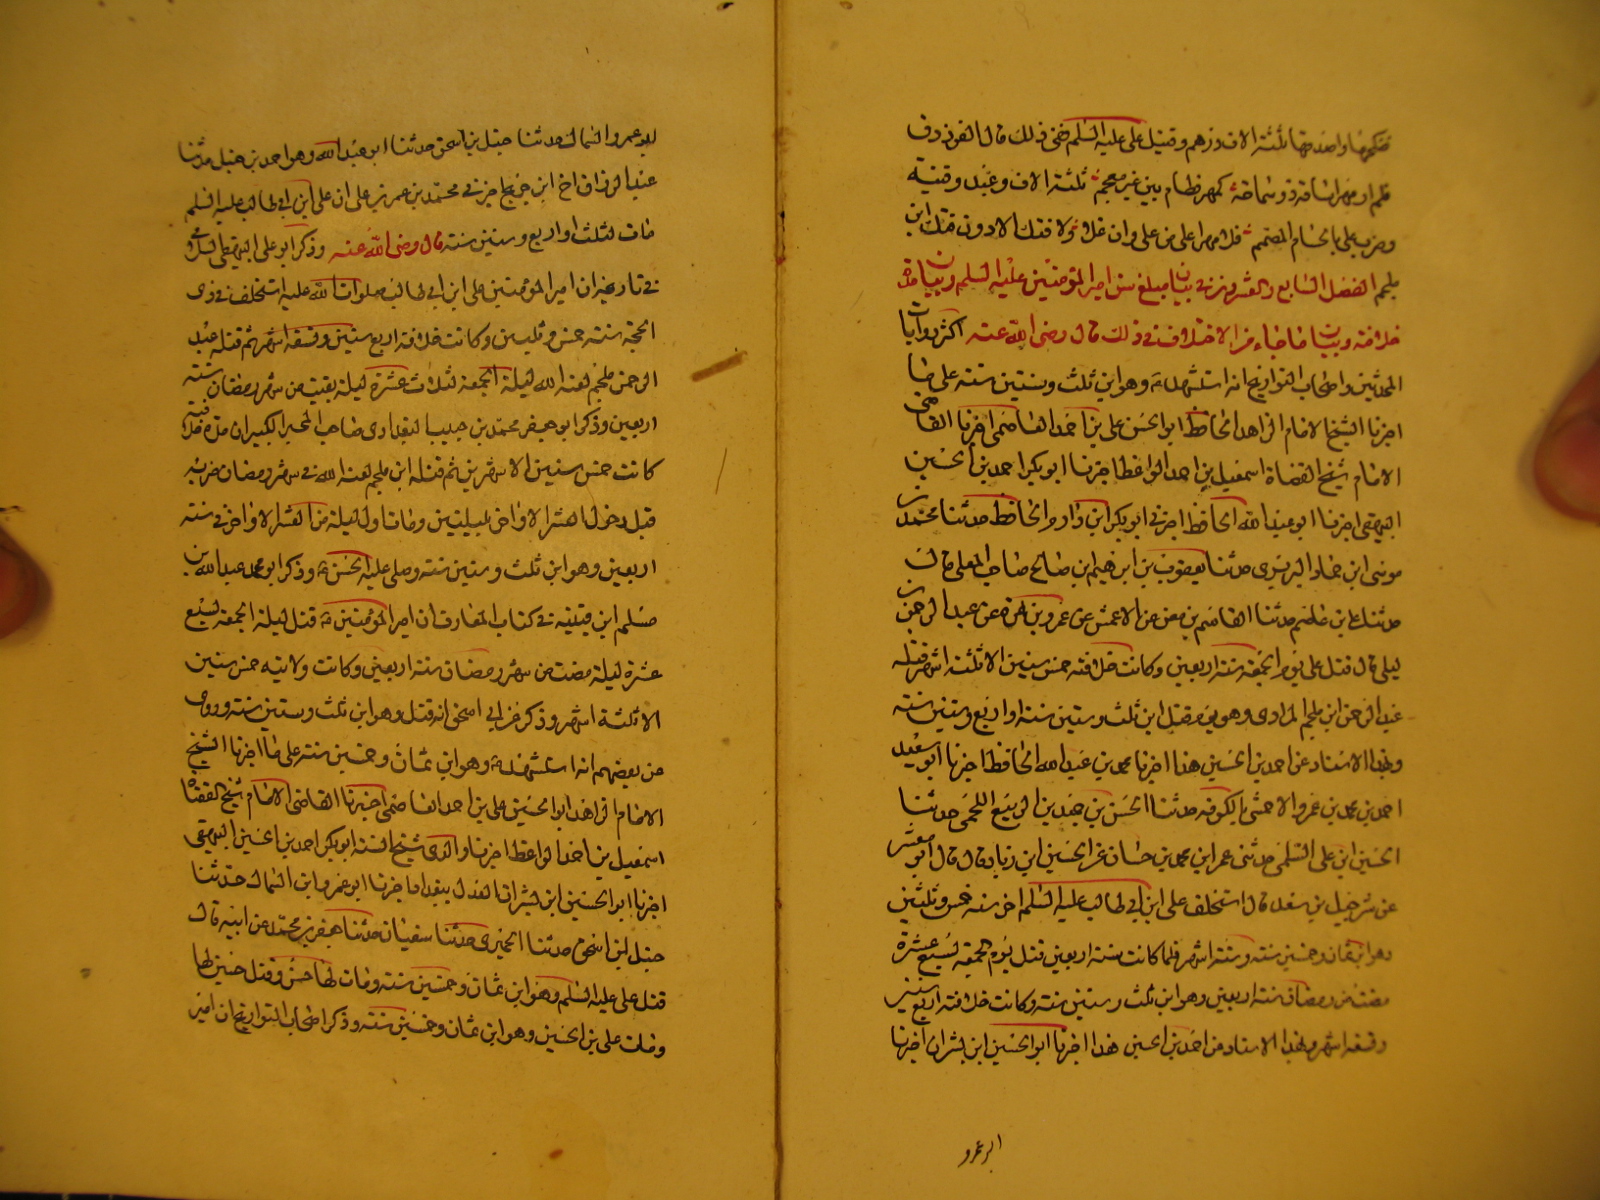 فنكحها واصدقها ثلثة الاف درهم وقتل علي عليه السلم ففي ذلك قال الفرزدق
فلم ار مهرا ساقه ذو سماحة كمهر قطام بين غير معجم ثلثة الاف وعبد وقينة
وضرب علي بالحسام المصمم فلا مهر اغلى من علي وان غلا ولا فتك الا دون فتك ابن
ملجم الفصل السابع والعشرون في بيان مبلغ سن امير المؤمنين عليه السلم وبيان مدة
خلافته وبيان ما جاء من الاختلاف في ذلك قال رضي الله عنه اكثر روايات
المحدثين واصحاب التواريخ انه استشهد وهو ابن ثلث وستين سنة على ما
اخبرنا الشيخ الامام الزاهد الحافظ ابو الحسن علي بن احمد العاصمي اخبرنا القاضي
الامام شيخ القضاة اسمعيل بن احمد الواعظ اخبرنا ابو بكر احمد بن الحسين
البيهقي اخبرنا ابو عبد الله الحافظ اخبرني ابو بكر ابن دارم الحافظ حدثنا محمد بن
موسى ابن حماد البربري حدثنا يعقوب بن ابرهيم ابن صالح صاحب المصلى قال
حدثنا علي بن عاصم حدثنا القاسم بن معن عن الاعمش عن عمرو بن مرة عن عبد الرحمن بن
ليلى قال قتل علي يوم الجمعة سنة اربعين وكانت خلافته خمس سنين الا ثلثة اشهر قتله
عبد الرحمن ابن ملجم المرادي وهو يومئذ ابن ثلث وستين سنة او اربع وستين سنة
وبهذا الاسناد عن احمد بن الحسين هذا اخبرنا محمد بن عبد الله الحافظ اخبرنا ابو سعيد
احمد بن محمد بن عمرو الاحمسي بالكوفة حدثنا الحسن بن حميد بن الربيع اللخمي حدثنا
الحسين ابن علي السلمي حدثني عمر ابن محمد بن حسان عن الحسين ابن زياد قال قال ابو معشر
عن شرحبيل بن سعد قال استخلف علي ابن ابي طالب عليه السلم اخر سنة خمس وثلثين
وهو ابن ثمان وخمسين سنة وستة اشهر فلما كانت سنة اربعين قتل يوم الجمعة لسبع عشرة
مضت من رمضان سنة اربعين وهو ابن ثلث وستين سنة وكانت خلافته اربع سنين
وتسعة اشهر وبهذا الاسناد عن احمد بن الحسين هذا اخبرنا ابو الحسين ابن بشران اخبرنا
ابو عمرو السماك حدثنا حنبل بن اسحق حدثنا ابو عبد الله وهو احمد بن حنبل حدثنا
عبد الرزاق اخ ابن جريج اخبرني محمد بن عمر بن علي ان علي ابن ابي طالب عليه السلم
مات لثلث او اربع وستين سنة قال رضي الله عنه وذكر ابو علي البيهقي السلامي
في تاريخه ان امير المؤمنين علي ابن ابي طالب صلوات الله عليه استخلف في ذي
الحجة سنة خمس وثلثين وكانت خلافته اربع سنين وتسعة اشهر ثم قتله عبد
الرحمن ملجم لعنه الله ليلة الجمعة لثلاث عشرة ليلة بقيت من شهر رمضان سنة
اربعين وذكر ابو جعفر محمد بن حبيب البغدادي صاحب المحبر الكبير ان مدة خلافته
كانت خمس سنين الا شهرين ثم قتله ابن ملجم لعنه الله في شهر رمضان ضربه
قبل دخول العشر الاواخر بليلتين ومات اول ليلة من العشر الاواخر في سنة
اربعين وهو ابن ثلث وستين سنة وصلى عليه الحسن وذكر ابو محمد عبد الله بن
مسلم ابن قتيبة في كتاب المعارف ان امير المؤمنين قتل ليلة الجمعة لسبع
عشرة ليلة مضت من شهر رمضان سنة اربعين وكانت ولايته خمس سنين
الا ثلثة اشهر وذكر عن ابي اسحق انه قتل وهو ابن ثلث وستين سنة وروى
عن بعضهم انه استشهد وهو ابن ثمان وخمسين سنة على ما اخبرنا الشيخ
الامام الزاهد ابو الحسين علي بن احمد العاصمي اخبرنا القاضي الامام شيخ القضاة
اسمعيل بن احمد الواعظ اخبرنا والدي شيخ السنة ابو بكر احمد بن الحسين البيهقي
اخبرنا ابو الحسين ابن بشران العدل ببغداد اخبرنا ابو عمرو ابن السماك حدثنا
حنبل ابن اسحق حدثنا الحميدي حدثنا سفيان حدثنا جعفر بن محمد عن ابيه قال
قتل علي عليه السلم وهو ابن ثمان وخمسين سنة ومات لها حسن وقتل حسين لها
ومات علي بن الحسين وهو ابن ثمان وخمسين سنة وذكر اصحاب التواريخ ان امير